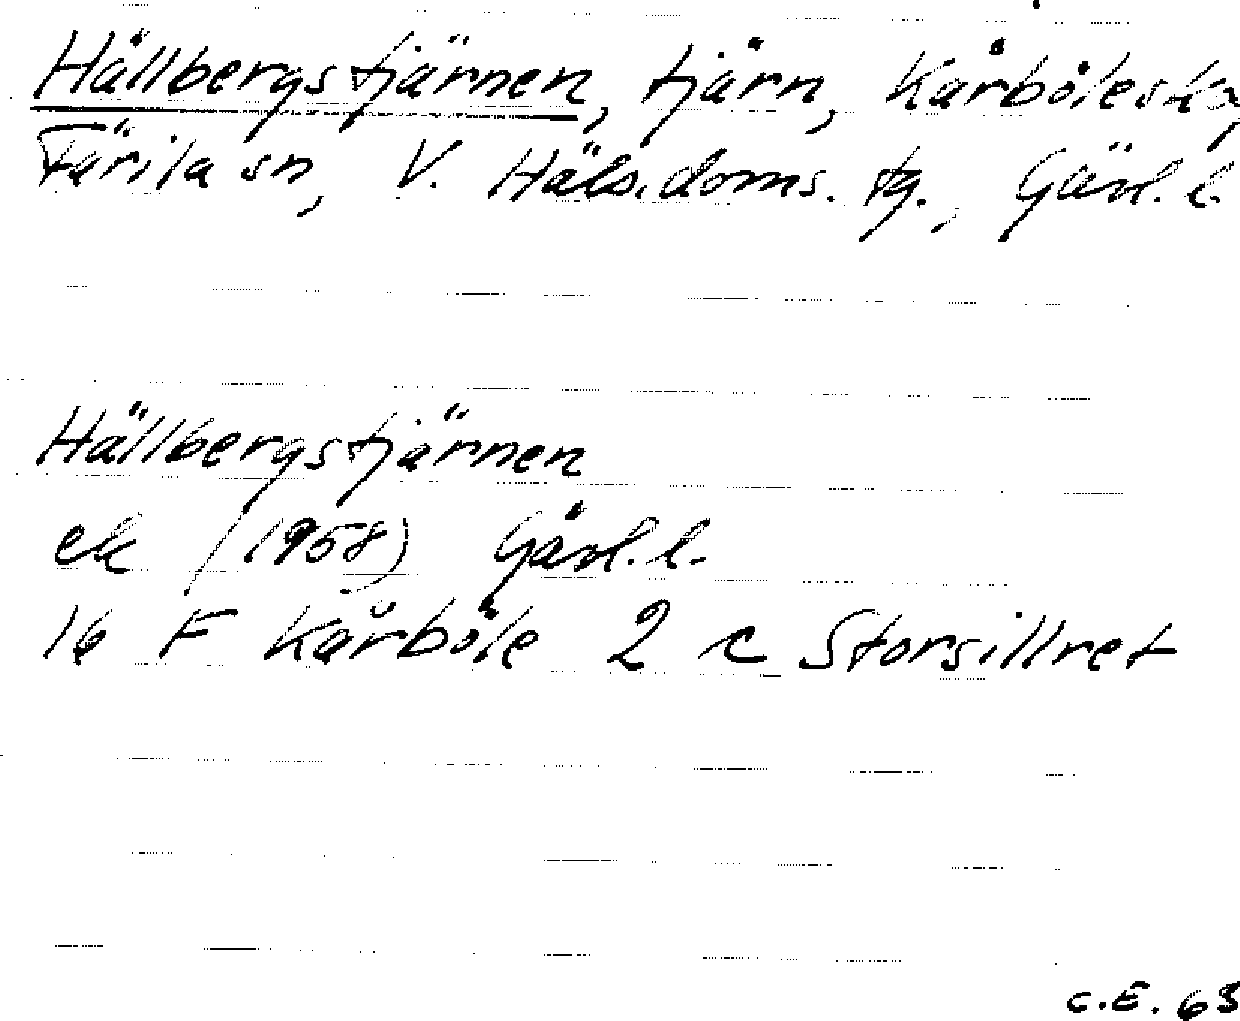 Hällbergstjärnen, tjärn, Kårböleskg
Färila sn, V. Häls. doms. tg., Gävl. l.
Hällbergstjärnen
ek (1958) Gävl. l.
16 F Kårböle 2 c Storsillret
C.E. 63